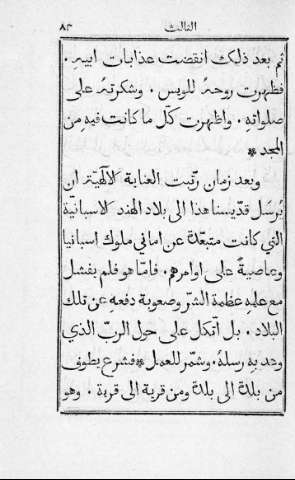 الثالث ٨٣
ثم بعد ذلك انقضت عذابات ابيه.
فظهرت روحهُ للويس. وشكرتهُ على
صلواتهِ. واظهرت كلّ ما كانت فيه من
المجد *
وبعد زمان رتبت العناية الالٓهيّة ان
يُرسَل قدّيسنا هذا الى بلاد الهند الاسبانيّة
التي كانت متبعّدة عن اماني ملوك اسبانيا
وعاصيةً على اوامرهم. فامّا هو فلم يفشل
مع علمهِ عظمة الشرّ وصعوبة دفعهِ عن تلك
البلاد. بل اتّكل على حول الربّ الذي
وحده رسلهُ. وشمّر للعمل * فشرع يطوف
من بلدة الى بلدة ومن قرية الى قرية. وهو